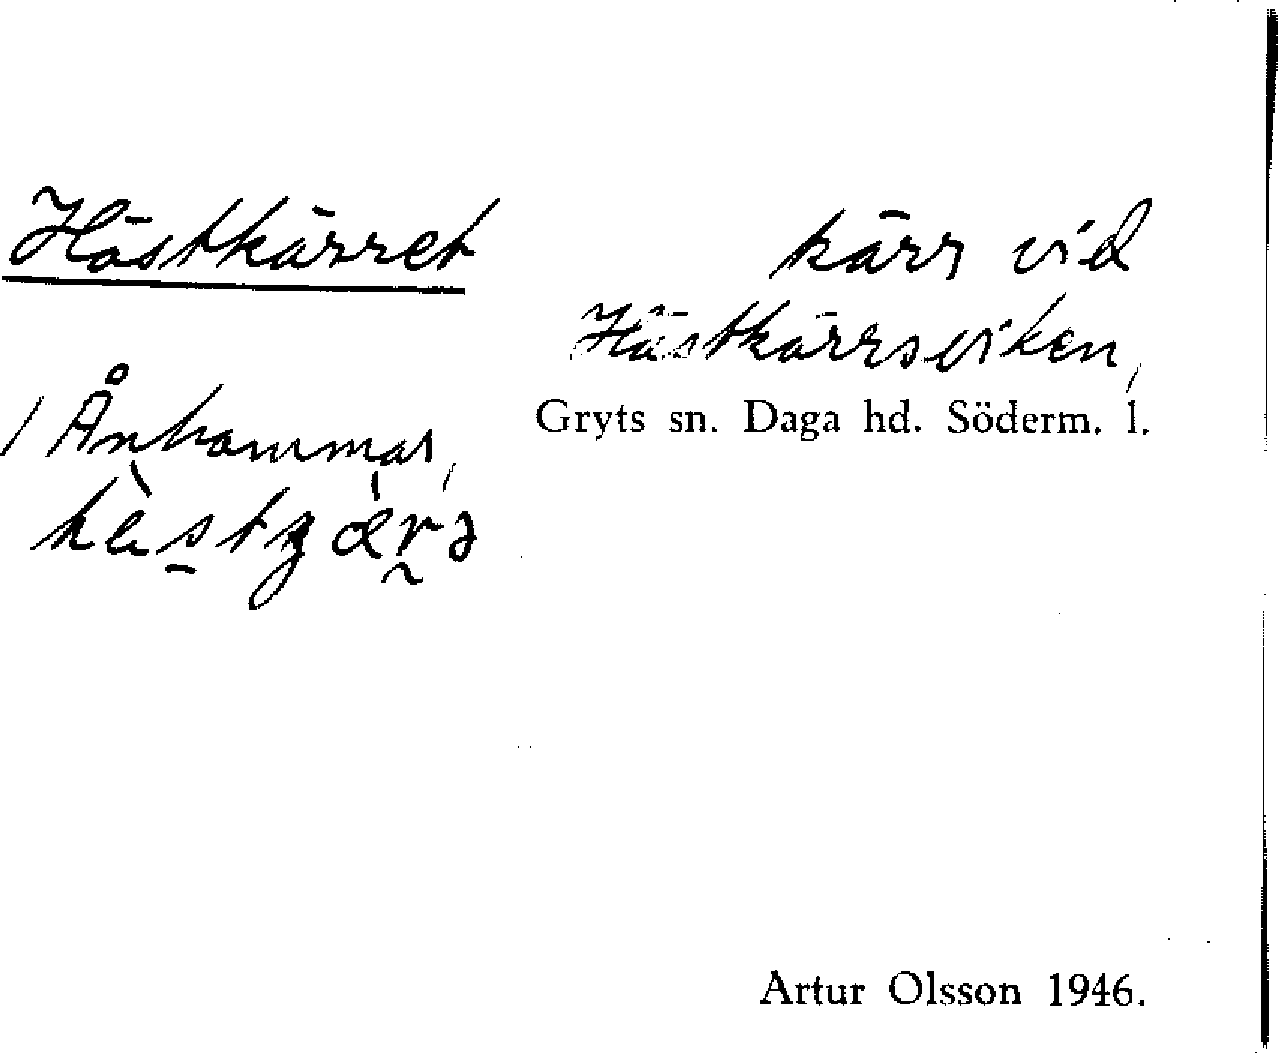 Hästkärret
/ Ånhammar,
kärr vid
Hästkärrsviken,
Gryts sn. Daga hd. Söderm. l.
Artur Olsson 1946.